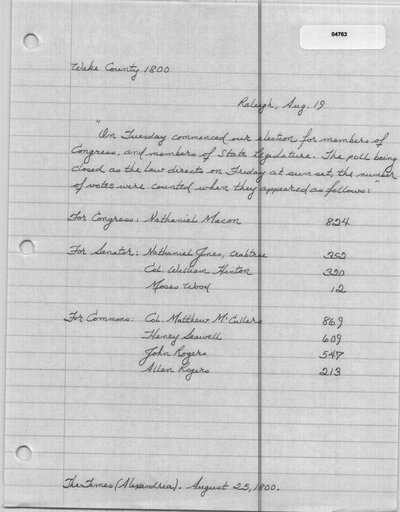 04763
Wake County 1800
Raleigh, Aug. 19
"On Tuesday commenced our election for members of
Congress, and members of State Legislature. The poll being
closed as the law directs on Friday at sun set, the number
of votes were counted when they appeared as follows:"
For Congress: Nathaniel Macon 824
For Senator: Nathaniel Jones, Crabtree 352
Col. William Hinton 320
Moses Wood 12
For Commons: Col. Matthew McCullers 869
Henry Seawell 609
John Rogers 547
Allen Rogers 213
The Times (Alexandria). August 25, 1800.